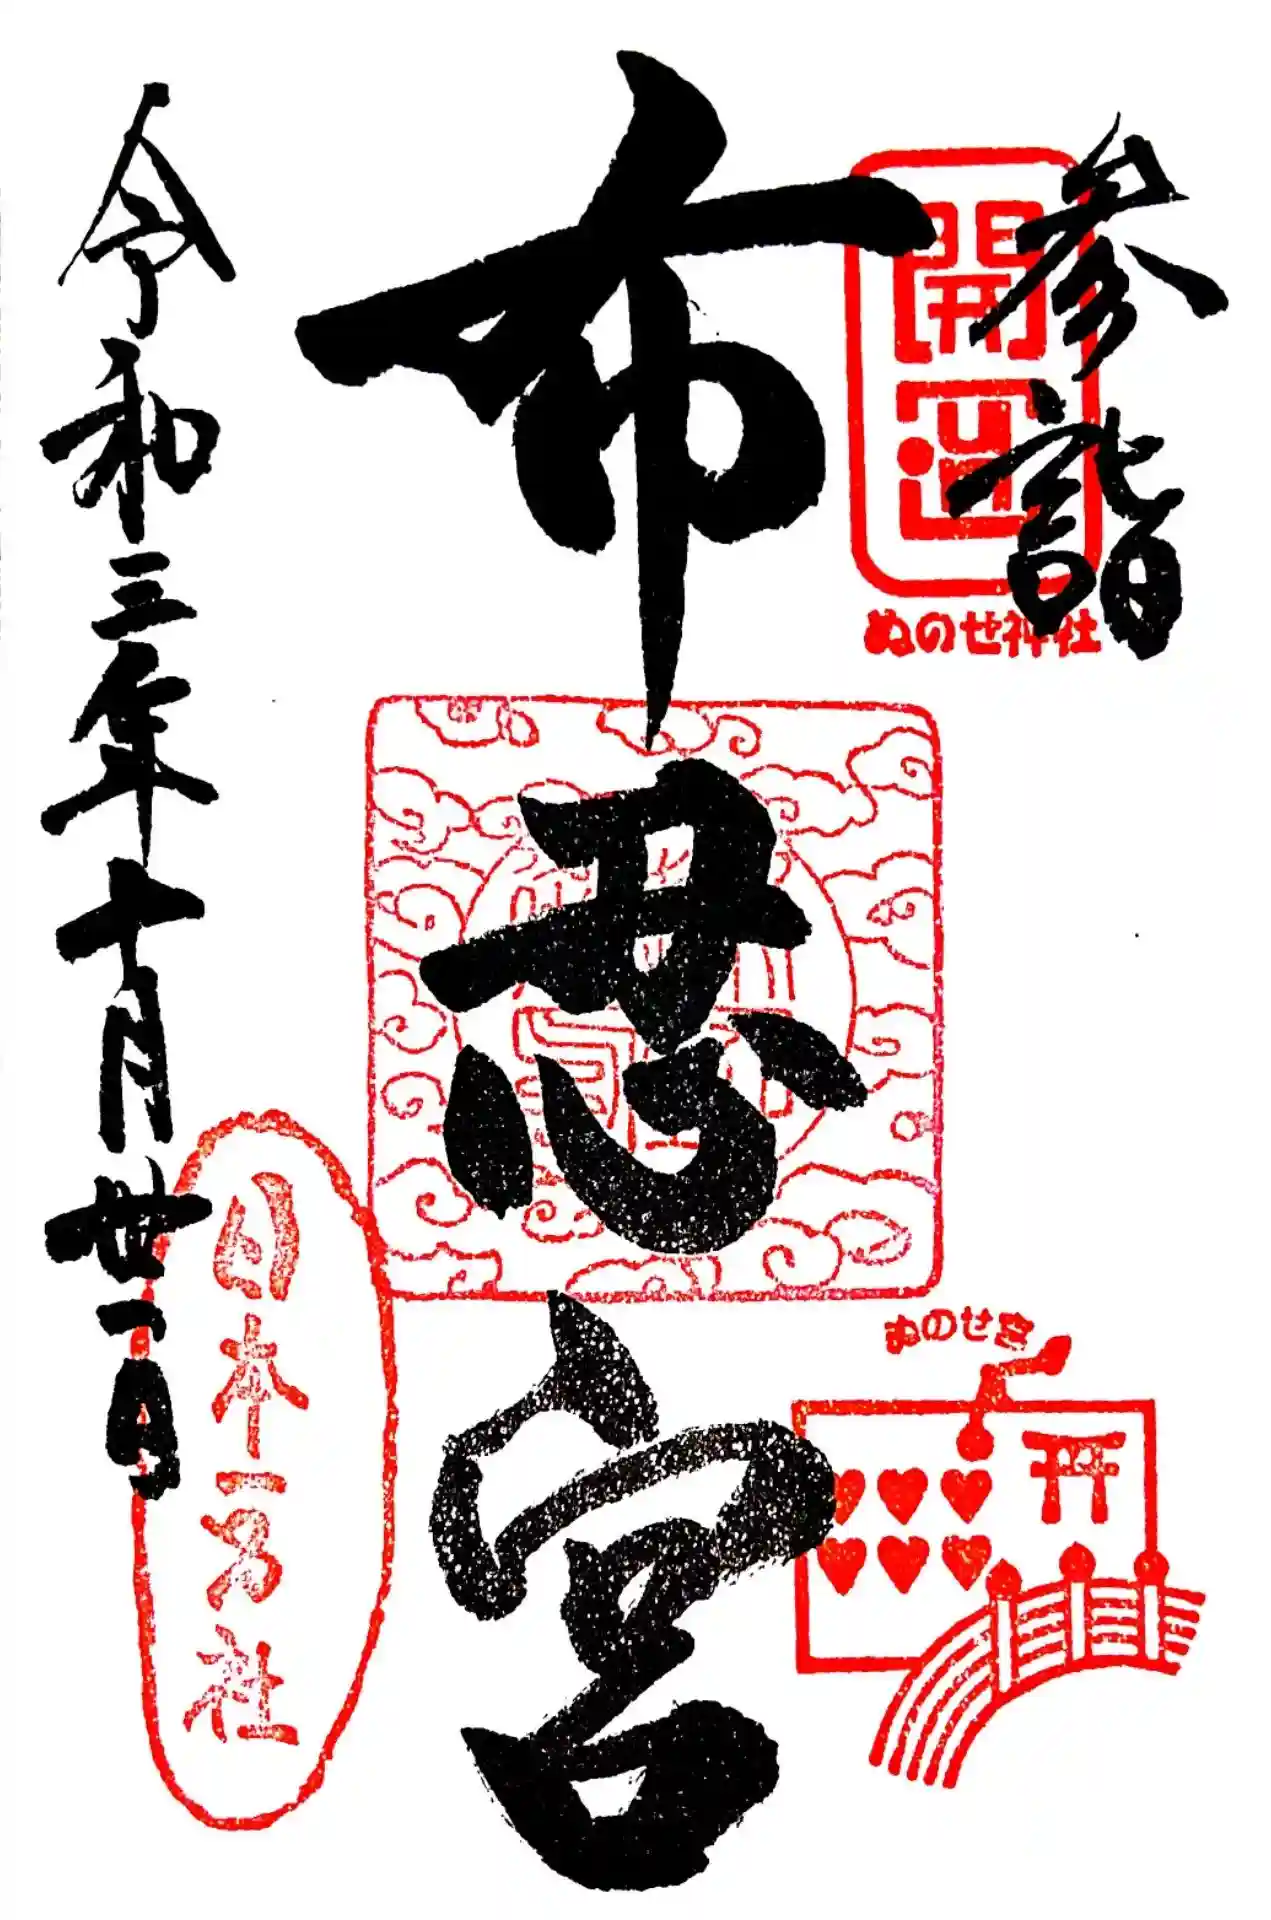 参詣
開運
ぬのせ神社
布忍宮
ぬのせ宮
令和三年十月卅一日
日本一万社